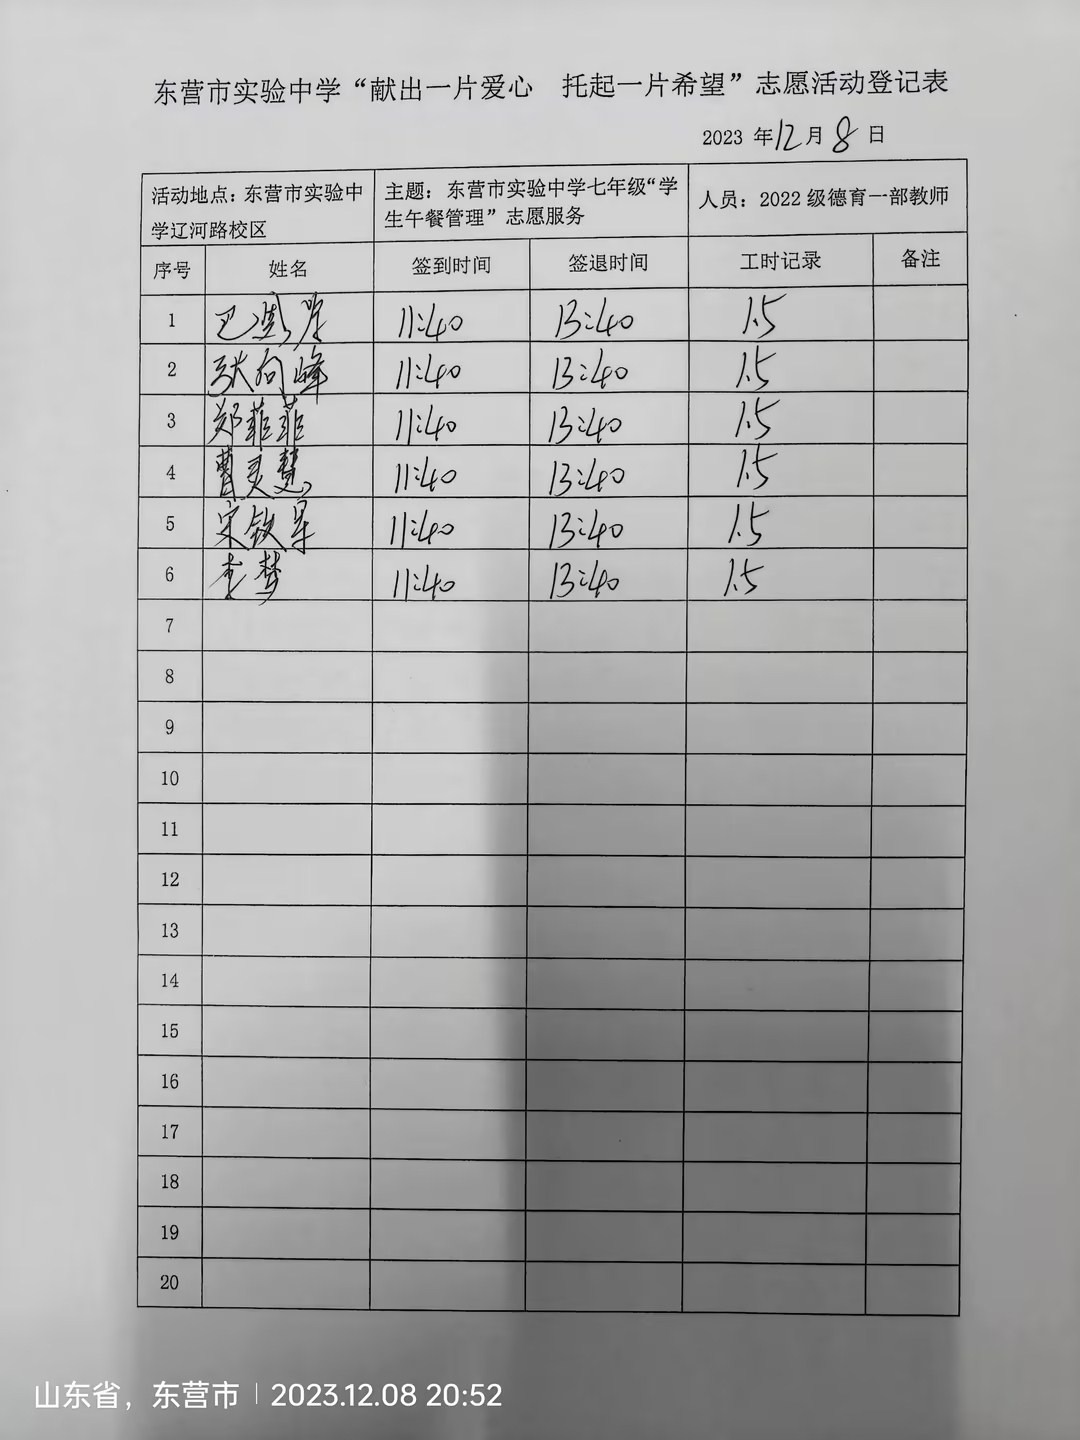 东营市实验中学“献出一片爱心 托起一片希望”志愿活动登记表
2023 年12月8日
活动地点：东营市实验中
学辽河路校区
主题：东营市实验中学七年级“学
生午餐管理”志愿服务
人员：2022 级德育一部教师
序号 姓名 签到时间 签退时间 工时记录 备注
1 巴 11:40 13:40 1.5
2 张向峰 11:40 13:40 1.5
3 郑菲菲 11:40 13:40 1.5
4 曹灵慧 11:40 13:40 1.5
5 宋钦军 11:40 13:40 1.5
6 李梦 11:40 13:40 1.5
7
8
9
10
11
12
13
14
15
16
17
18
19
20
山东省，东营市 | 2023.12.08 20:52